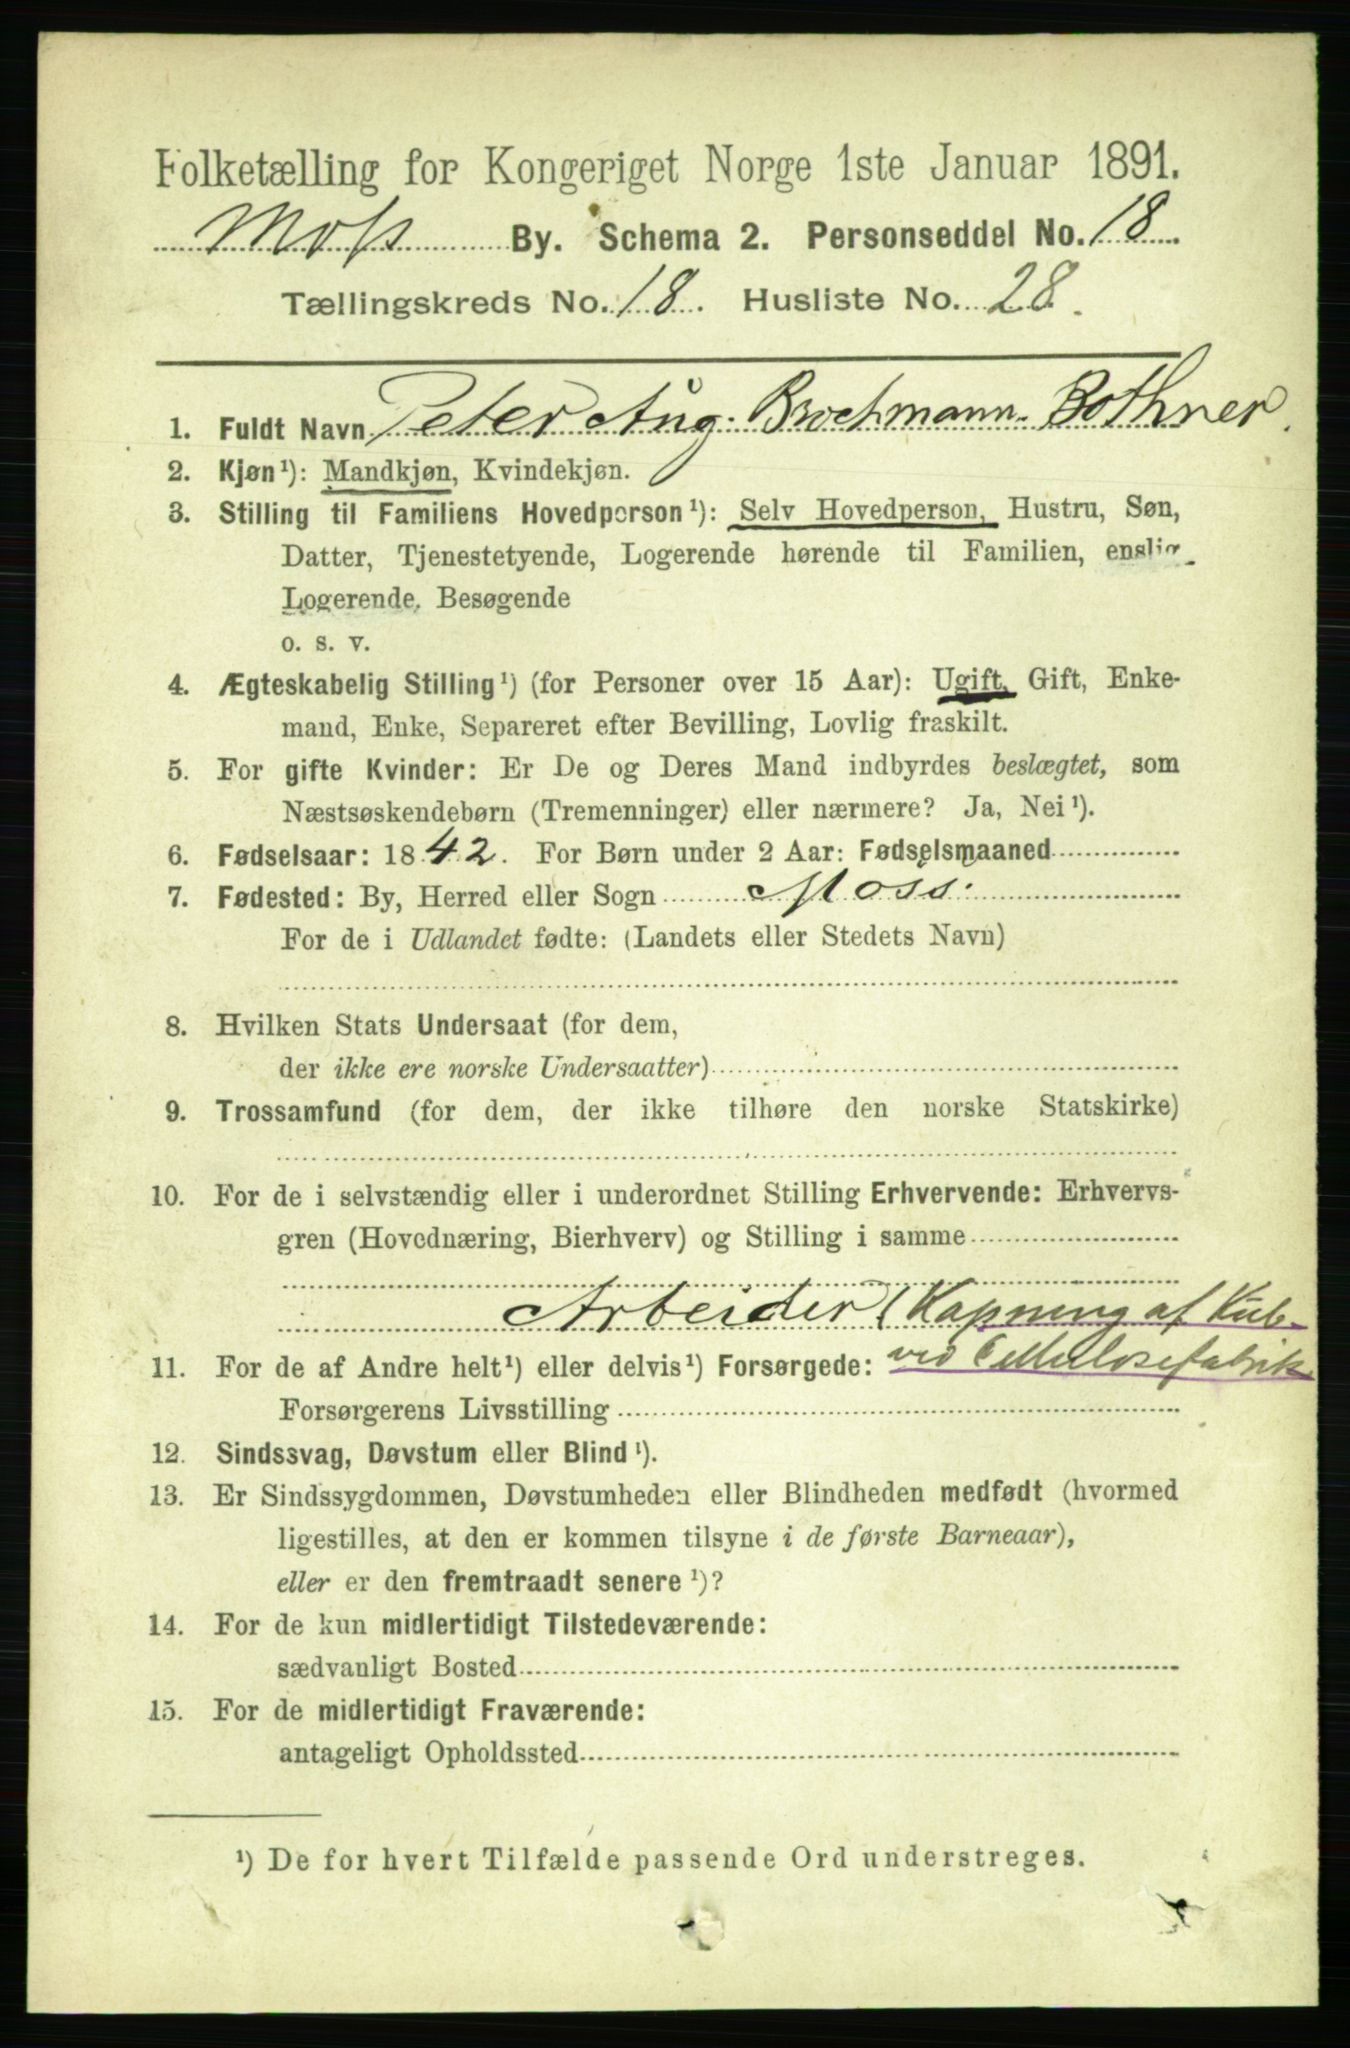 Folketælling for Kongeriget Norge 1ste Januar 1891.
Moss By. Schema 2. Personseddel No. 18
Tællingskreds No. 18. Husliste No. 28.
1. Fuldt Navn Peter Aug. Brochmann Bothner.
2. Kjøn¹): Mandkjøn, Kvindekjøn.
3. Stilling til Familiens Hovedperson¹): Selv Hovedperson, Hustru, Søn,
Datter, Tjenestetyende, Logerende hørende til Familien, enslig
Logerende, Besøgende
o. s. v.
4. Ægteskabelig Stilling¹) (for Personer over 15 Aar): Ugift, Gift, Enke-
mand, Enke, Separeret efter Bevilling, Lovlig fraskilt.
5. For gifte Kvinder: Er De og Deres Mand indbyrdes beslægtet, som
Næstsøskendebørn (Tremenninger) eller nærmere? Ja, Nei¹).
6. Fødselsaar: 1842. For Børn under 2 Aar: Fødselsmaaned
7. Fødested: By, Herred eller Sogn Moss.
For de i Udlandet fødte: (Landets eller Stedets Navn)
8. Hvilken Stats Undersaat (for dem,
der ikke ere norske Undersaatter)
9. Trossamfund (for dem, der ikke tilhøre den norske Statskirke)
10. For de i selvstændig eller i underordnet Stilling Erhvervende: Erhvervs-
gren (Hovednæring, Bierhverv) og Stilling i samme
Arbeider (Kapning af Kub-
ved Cellulosefabrik
11. For de af Andre helt¹) eller delvis¹) Forsørgede:
Forsørgerens Livsstilling
12. Sindssvag, Døvstum eller Blind¹).
13. Er Sindssygdommen, Døvstumheden eller Blindheden medfødt (hvormed
ligestilles, at den er kommen tilsyne i de første Barneaar),
eller er den fremtraadt senere¹)?
14. For de kun midlertidigt Tilstedeværende:
sædvanligt Bosted
15. For de midlertidigt Fraværende:
antageligt Opholdssted
¹) De for hvert Tilfælde passende Ord understreges.